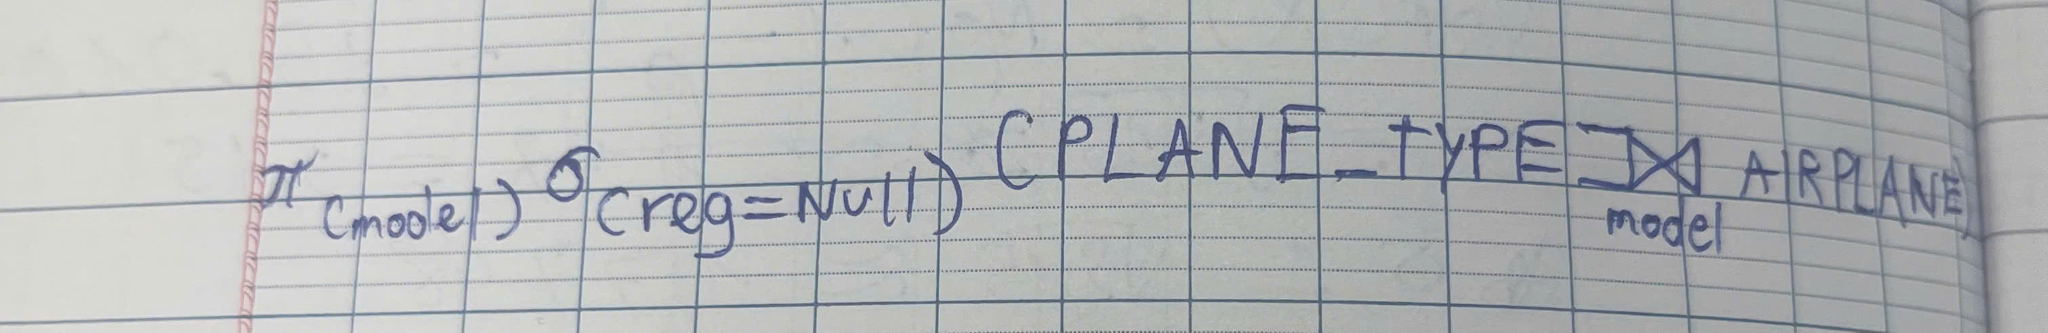 π (model) σ (reg=Null) (PLANE_tyPE ⟕ model AIRPLANE)